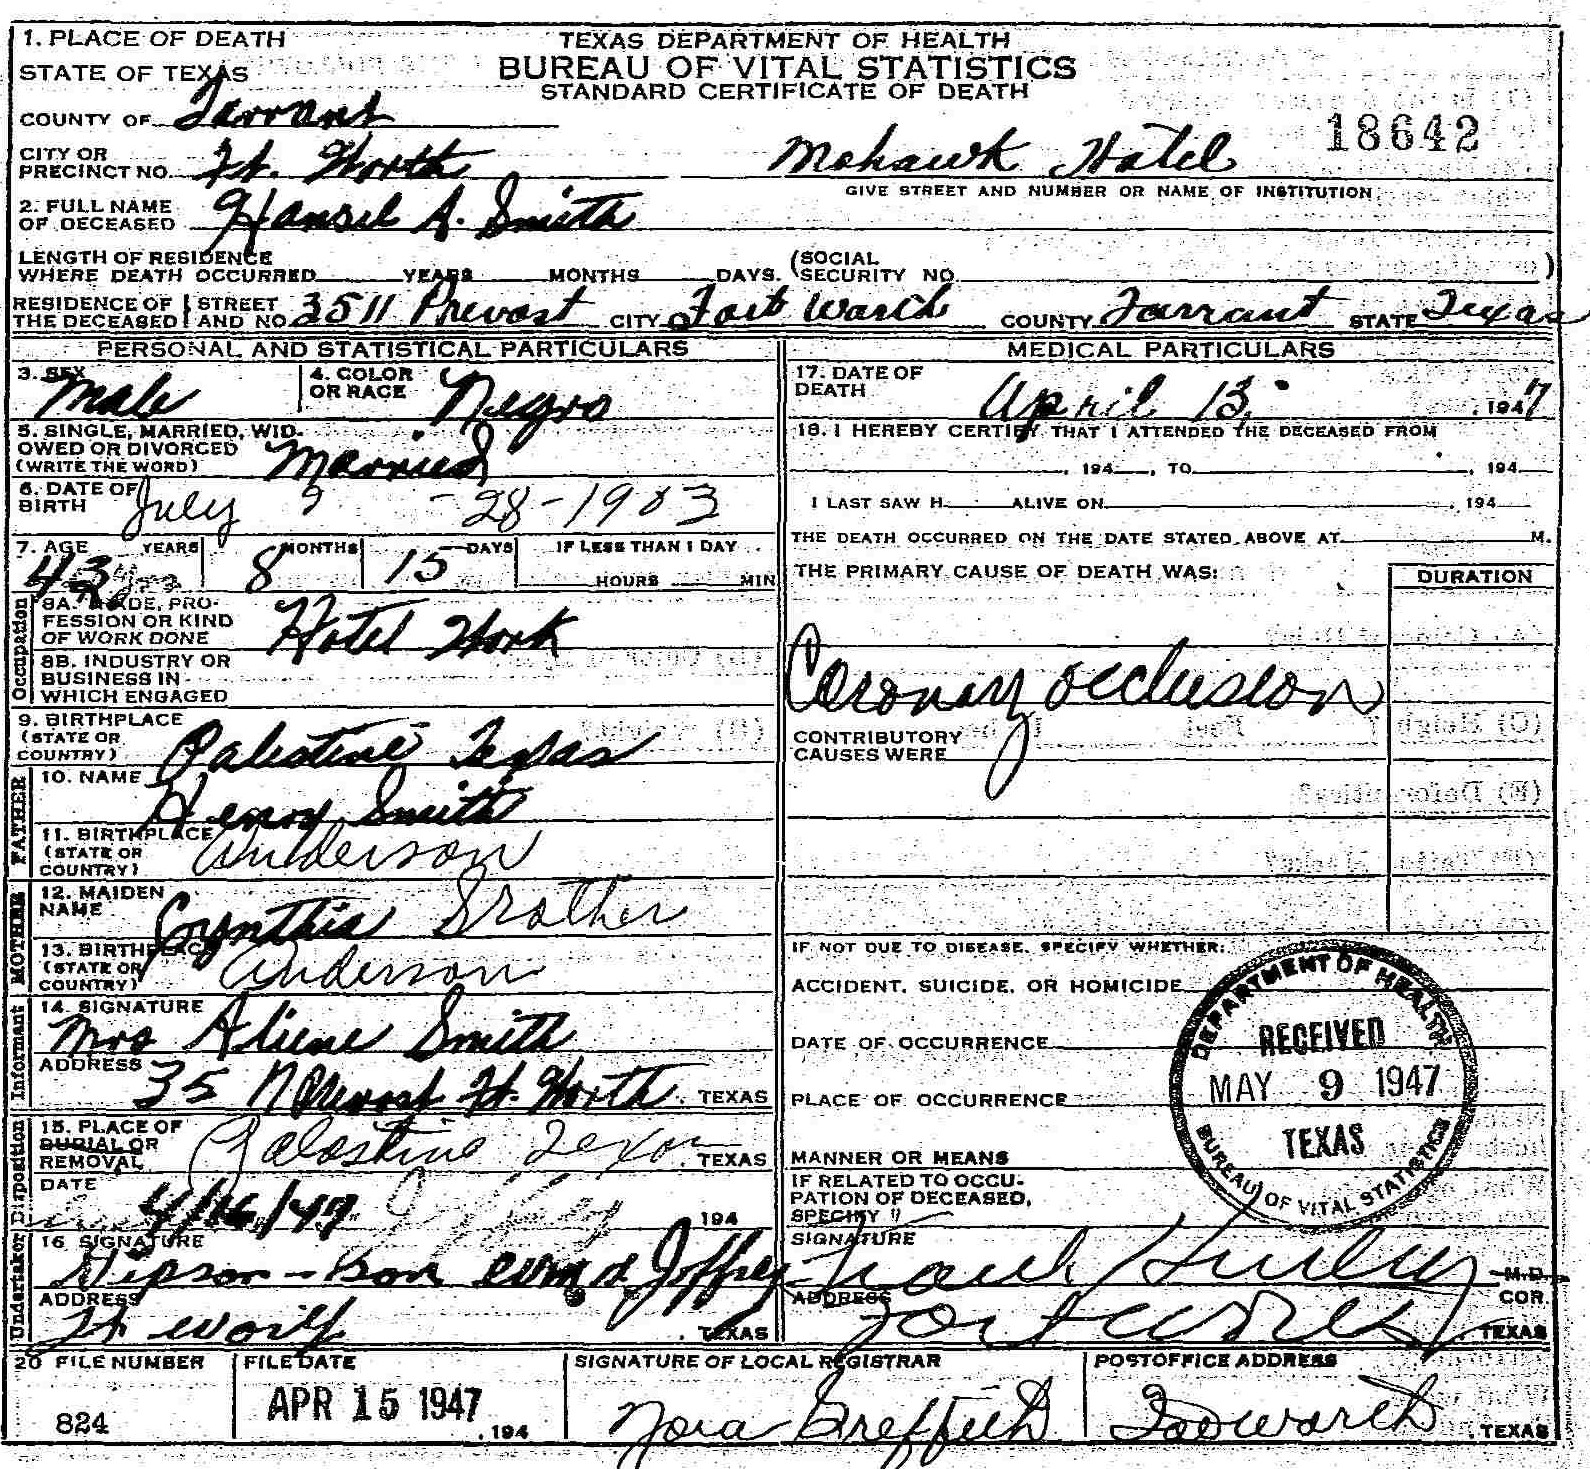 1. PLACE OF DEATH
STATE OF TEXAS
TEXAS DEPARTMENT OF HEALTH
BUREAU OF VITAL STATISTICS
STANDARD CERTIFICATE OF DEATH
COUNTY OF Tarrant
18642
CITY OR PRECINCT NO. Ft. Worth Mohawk Hotel
GIVE STREET AND NUMBER OR NAME OF INSTITUTION
2. FULL NAME OF DECEASED Hansel A. Smith
LENGTH OF RESIDENCE WHERE DEATH OCCURRED YEARS MONTHS DAYS. (SOCIAL SECURITY NO. )
RESIDENCE OF THE DECEASED STREET AND NO. 3511 Prevost CITY Fort Worth COUNTY Tarrant STATE Texas
PERSONAL AND STATISTICAL PARTICULARS
3. SEX Male 4. COLOR OR RACE Negro
5. SINGLE, MARRIED, WIDOWED OR DIVORCED (WRITE THE WORD) Married
6. DATE OF BIRTH July -28-1903
7. AGE 43 YEARS 8 MONTHS 15 DAYS IF LESS THAN 1 DAY HOURS MIN
Occupation
8A. TRADE, PROFESSION OR KIND OF WORK DONE Hotel Work
8B. INDUSTRY OR BUSINESS IN WHICH ENGAGED
9. BIRTHPLACE (STATE OR COUNTRY) Palestine Texas
FATHER
10. NAME Henry Smith
11. BIRTHPLACE (STATE OR COUNTRY) Anderson
MOTHER
12. MAIDEN NAME Cynthia Srother
13. BIRTHPLACE (STATE OR COUNTRY) Anderson
Informant
14. SIGNATURE Mrs Aliene Smith
ADDRESS 35 Prevost Ft. Worth, TEXAS
Disposition
15. PLACE OF BURIAL OR REMOVAL Palestine Texas, TEXAS
DATE 4/16/47 194
Undertaker
16 SIGNATURE Gipson-Son
ADDRESS Ft worth, TEXAS
MEDICAL PARTICULARS
17. DATE OF DEATH April 13, 1947
18. I HEREBY CERTIFY THAT I ATTENDED THE DECEASED FROM
, 194 , TO , 194
I LAST SAW H ALIVE ON , 194
THE DEATH OCCURRED ON THE DATE STATED ABOVE AT M.
THE PRIMARY CAUSE OF DEATH WAS: DURATION
Coronary occlusion
CONTRIBUTORY CAUSES WERE
IF NOT DUE TO DISEASE, SPECIFY WHETHER:
ACCIDENT, SUICIDE, OR HOMICIDE
DATE OF OCCURRENCE
PLACE OF OCCURRENCE
MANNER OR MEANS
IF RELATED TO OCCUPATION OF DECEASED, SPECIFY
DEPARTMENT OF HEALTH
RECEIVED
MAY 9 1947
TEXAS
BUREAU OF VITAL STATISTICS
SIGNATURE Frank M.D.
ADDRESS Fort Worth COR. , TEXAS
20 FILE NUMBER FILE DATE SIGNATURE OF LOCAL REGISTRAR POSTOFFICE ADDRESS
824 APR 15 1947 , 194 Nora Greffieth , TEXAS